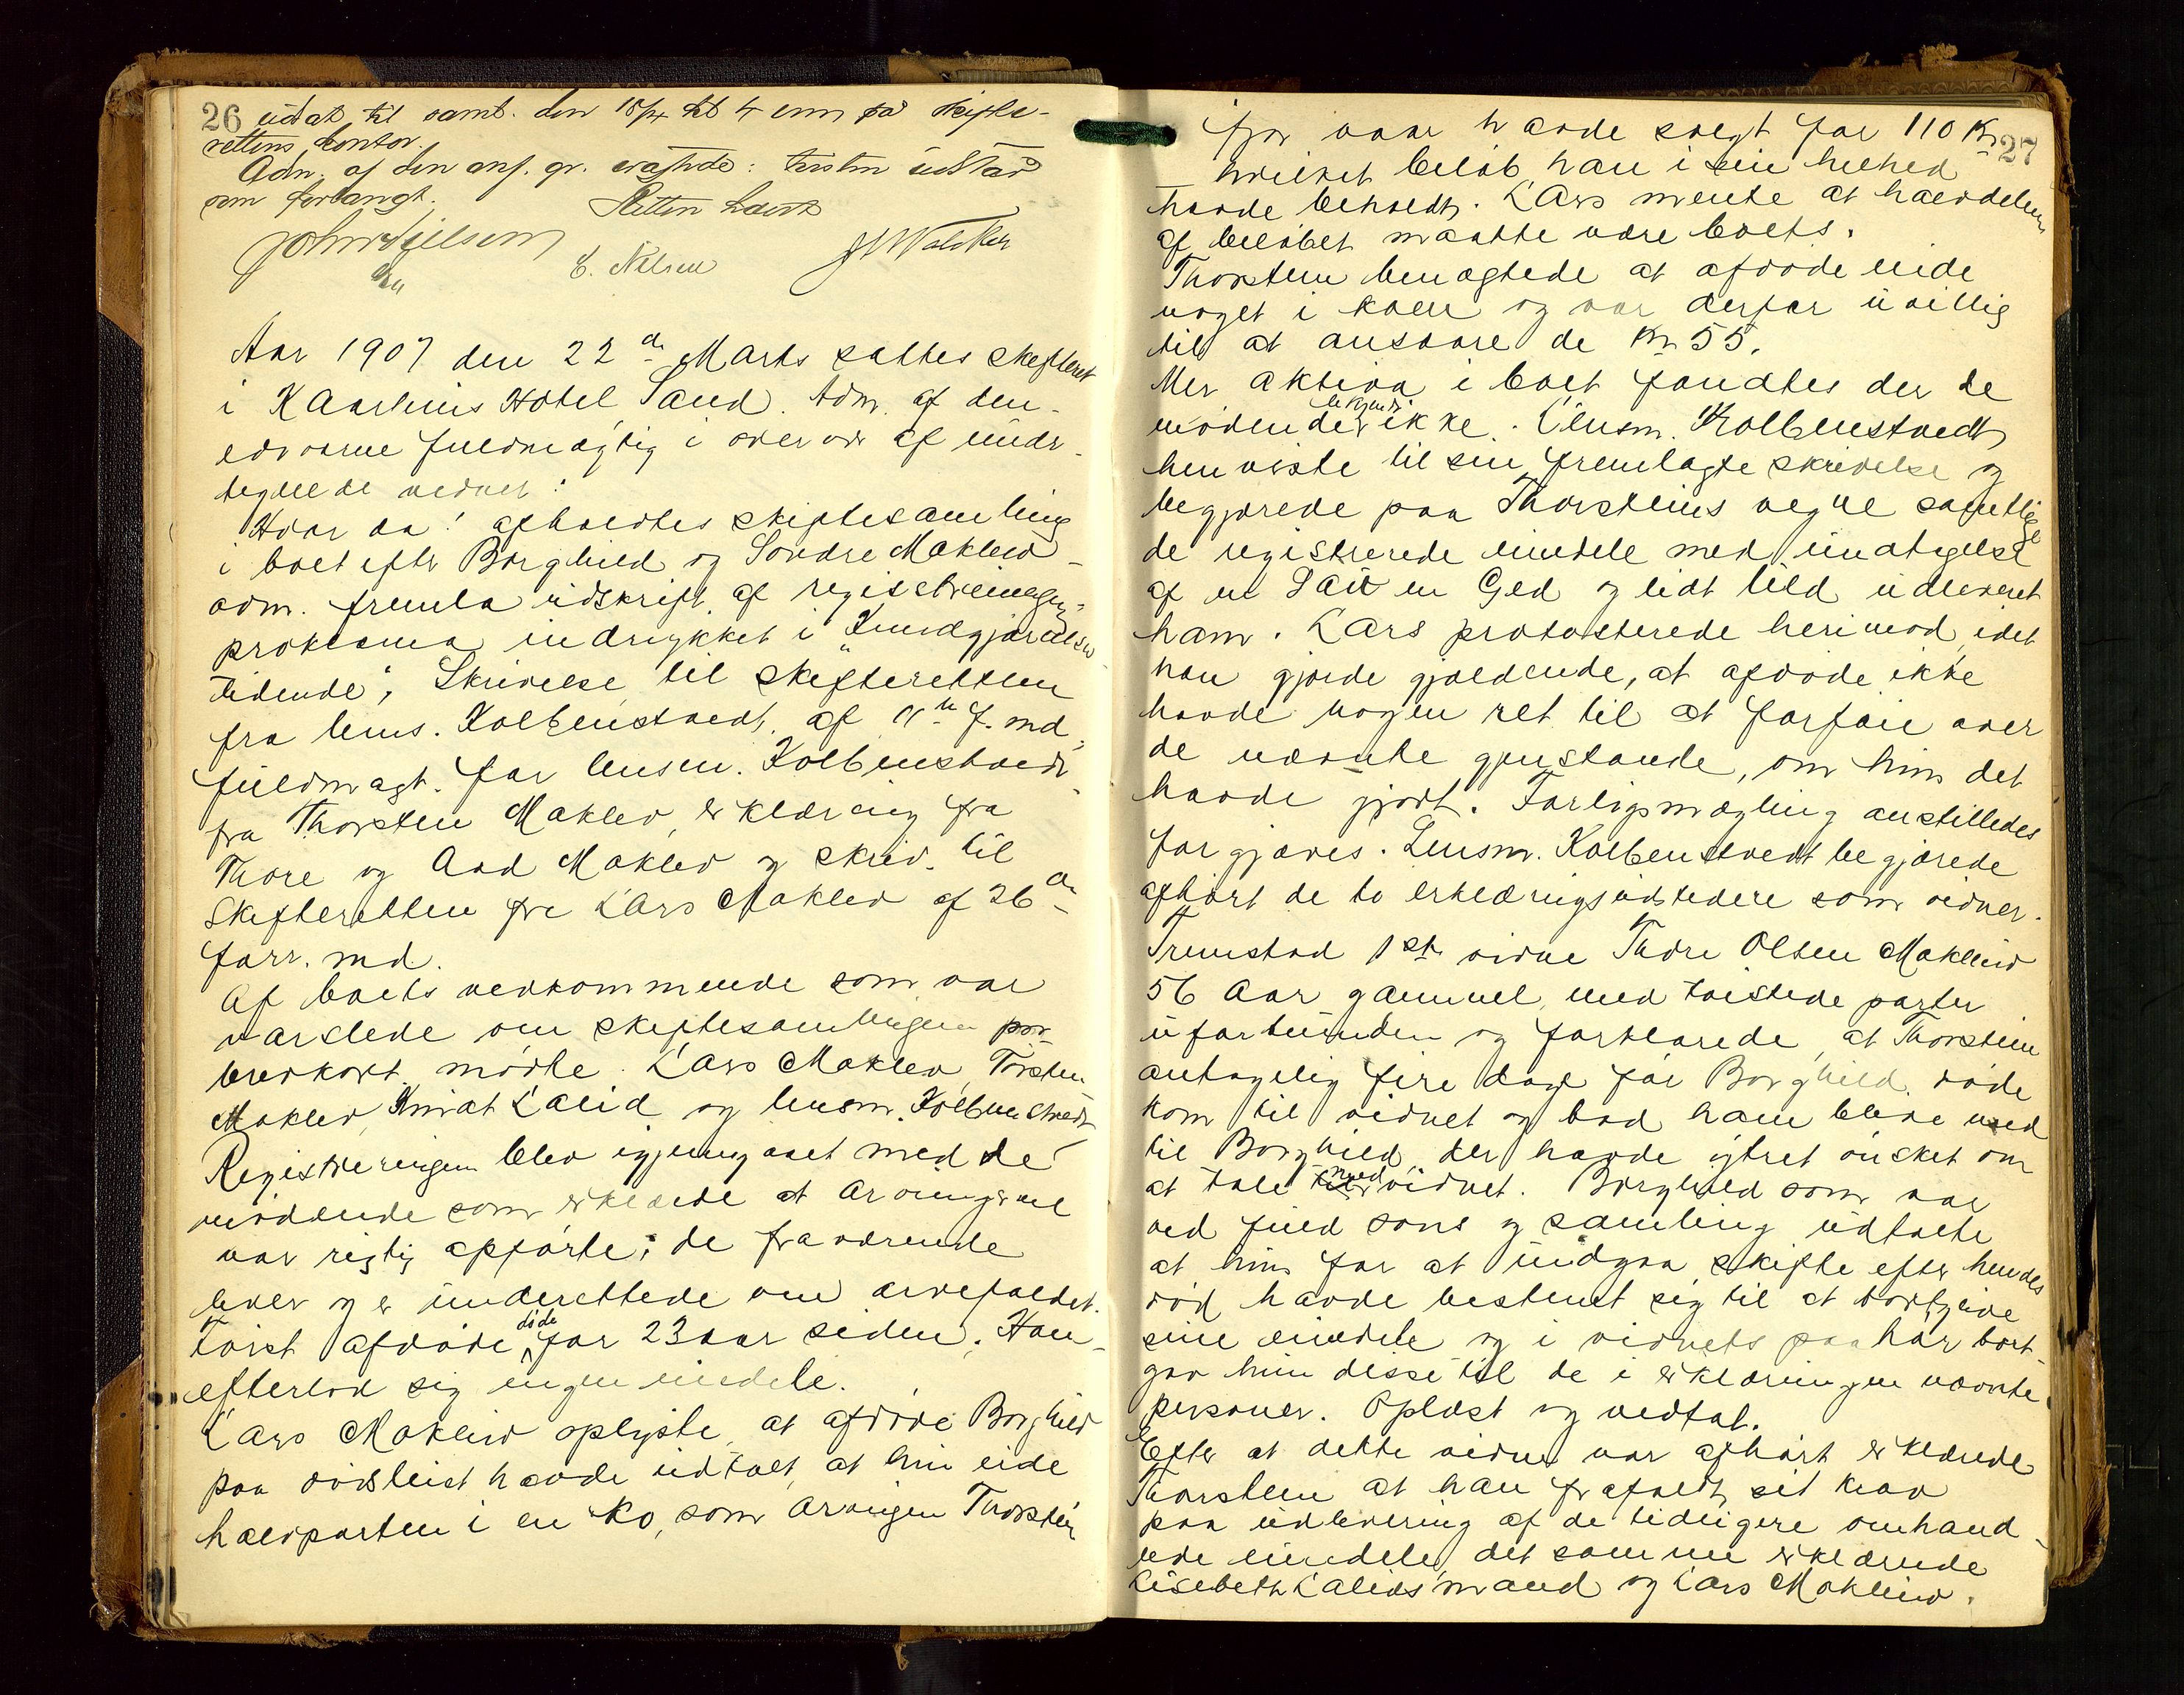 26 udsat til samt. den 18/4 kl 4 em på skifte-
rettens kontor.
Adm. af den anf. gr. : fristen udstår
som forlangt. Retten hævet
John Nilsen C. Nelsen
Aar 1907 den 22de Marts sattes skifteret
i Kaarhuis Hotel Sand. Adm. af den
edsvorne fuldmægtig i overvær af undr
tegnede vidner:
Hvor da! afholdtes skiftesamling
i boet efter Borghild og Sondre Moklev
adm. fremla udskrift af registreringen,
proklama indrykket i "Kundgjørelses
tidende", Skrivelse til skifteretten
fra lens. Kolbenstvedt af 11te f. md,
fuldmagt for lensm. Kolbenstvedt
fra Thorsten Moklev, erklæring fra
Thore og Aad Moklev og skriv. til
Skifteretten fra Lars Moklev af 26de
forr. md.
Af boets vedkommende som var
varslede om skiftesamlingen pr
brevkort, mødte Lars Moklev, Torsten
Moklev, Knut Lalid og lensm. Kolbenstvedt
Registreringen blev igjennemgaaet med de
mødende som erklærede at arvingerne
var rigtig opførte; de fraværende
lever og er underettede om arvefaldet.
Først afdøde døde for 23 aar siden. Han
efterlod sig ingen eiedele.
Lars Moklev oplyste, at afdøde Borghild
paa dødsleiet havde udtalt, at hun eide
halvparten i en Ko, som arvingen Thorstein
27
ifjor vaar havde solgt for 110 Kr
hvilket beløb han i sin helhed
havde beholdt. Lars mente at halvdelen
af beløbet maatte være boets.
Thorsten benægtede at afdøde eide
noget i koen og var derfor uvillig
til at ansvare de Kr 55.
Mer aktiva i boet fandtes der de
mødende bekjendt ikke. Lensm. Kolbenstvedt
henviste til sin fremlagte skrivelse og
begjærede paa Thorsteins vegne samtlige
de registrerede eiendele med undtagelse
af en Sau en Ged og lidt uld udleveret
ham. Lars protesterede herimod, idet
han gjorde gjældende, at afdøde ikke
havde nogen ret til at forføie over
de nævnte gjenstande, om hun det
havde gjort. Forligsmægling anstilledes
forgjæves. Lensm. Kolbenstvedt begjærede
afhørt de to erklæringsudstedere som vidner.
Fremstod 1ste vidne Thore Olsen Moklev
56 Aar gammel, med tvistede parter
uforbunden og forklarede, at Thorstein
antagelig fire dage før Borghild døde
kom til vidnet og bad ham blive med
til Borghild, der havde ytret ønsket om
at tale med vidnet. Borghild som var
ved fuld sans og samling udtalte
at hun for at undgaa skifte efter hendes
død havde bestemt sig til at bortgive
sine eiedele og i vidnets paahør bort
gav hun disse til de i erklæringen nævnte
personer. Oplæst og vedtat.
Efter at dette vidne var afhørt erklærede
Thorsten at han frafaldt sit krav
paa udlevering af de tidligere omhand
lede eiendele, det samme erklærede
Lisebeth Lalids mand og Lars Moklev.